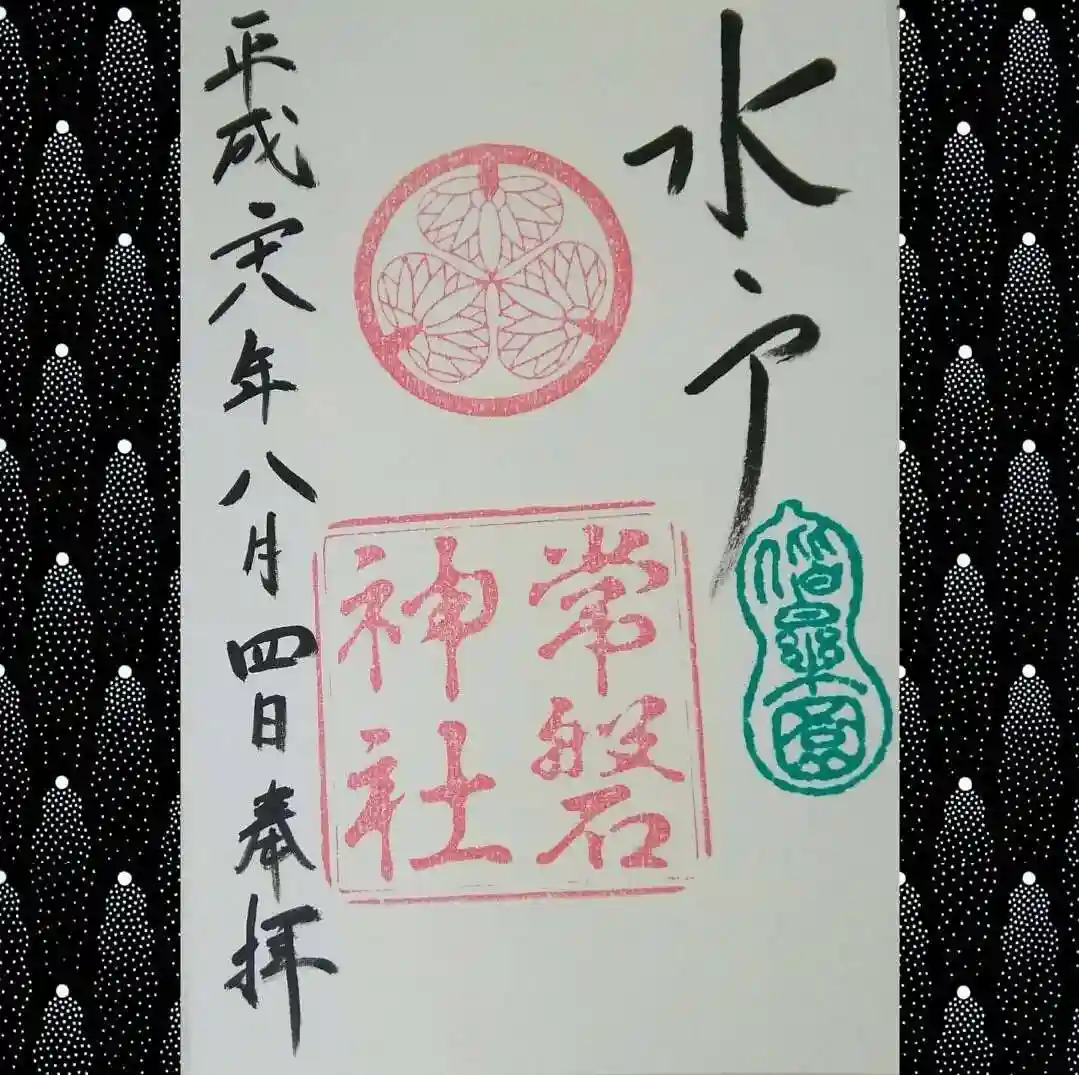 水戸
偕樂園
常磐
神社
平成二十八年八月四日奉拝